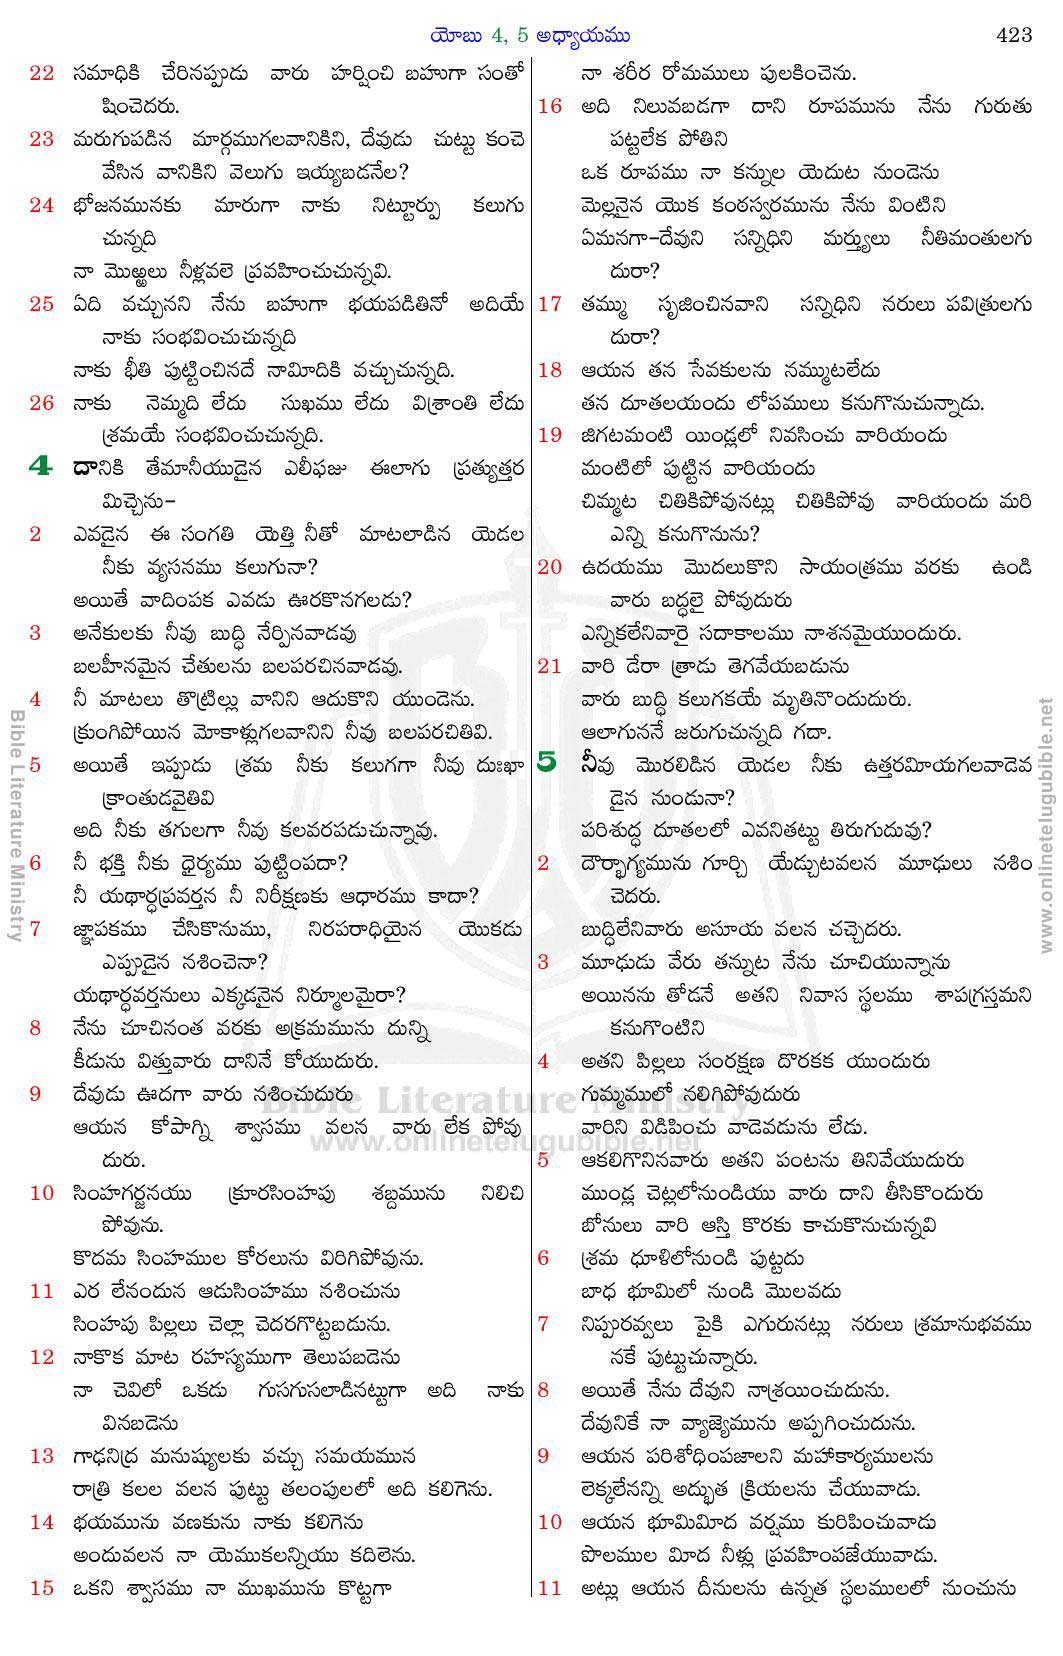 యోబు 4, 5 అధ్యాయము
423
22 సమాధికి చేరినప్పుడు వారు హర్షించి బహుగా సంతో
షించెదరు.
23 మరుగుపడిన మార్గముగలవానికిని, దేవుడు చుట్టు కంచె
వేసిన వానికిని వెలుగు ఇయ్యబడనేల?
24 భోజనమునకు మారుగా నాకు నిట్టూర్పు కలుగు
చున్నది
నా మొఱ్ఱలు నీళ్లవలె ప్రవహించుచున్నవి.
25 ఏది వచ్చునని నేను బహుగా భయపడితినో అదియే
నాకు సంభవించుచున్నది
నాకు భీతి పుట్టించినదే నామీదికి వచ్చుచున్నది.
26 నాకు నెమ్మది లేదు సుఖము లేదు విశ్రాంతి లేదు
శ్రమయే సంభవించుచున్నది.
4 దానికి తేమానీయుడైన ఎలీఫజు ఈలాగు ప్రత్యుత్తర
మిచ్చెను–
2 ఎవడైన ఈ సంగతి యెత్తి నీతో మాటలాడిన యెడల
నీకు వ్యసనము కలుగునా?
అయితే వాదింపక ఎవడు ఊరకొనగలడు?
3 అనేకులకు నీవు బుద్ధి నేర్పినవాడవు
బలహీనమైన చేతులను బలపరచినవాడవు.
4 నీ మాటలు తొట్రిల్లు వానిని ఆదుకొని యుండెను.
క్రుంగిపోయిన మోకాళ్లుగలవానిని నీవు బలపరచితివి.
5 అయితే ఇప్పుడు శ్రమ నీకు కలుగగా నీవు దుఃఖా
క్రాంతుడవైతివి
అది నీకు తగులగా నీవు కలవరపడుచున్నావు.
6 నీ భక్తి నీకు ధైర్యము పుట్టింపదా?
నీ యథార్థప్రవర్తన నీ నిరీక్షణకు ఆధారము కాదా?
7 జ్ఞాపకము చేసికొనుము, నిరపరాధియైన యొకడు
ఎప్పుడైన నశించెనా?
యథార్థవర్తనులు ఎక్కడనైన నిర్మూలమైరా?
8 నేను చూచినంత వరకు అక్రమమును దున్ని
కీడును విత్తువారు దానినే కోయుదురు.
9 దేవుడు ఊదగా వారు నశించుదురు
ఆయన కోపాగ్ని శ్వాసము వలన వారు లేక పోవు
దురు.
10 సింహగర్జనయు క్రూరసింహపు శబ్దమును నిలిచి
పోవును.
కొదమ సింహముల కోరలును విరిగిపోవును.
11 ఎర లేనందున ఆడుసింహము నశించును
సింహపు పిల్లలు చెల్లా చెదరగొట్టబడును.
12 నాకొక మాట రహస్యముగా తెలుపబడెను
నా చెవిలో ఒకడు గుసగుసలాడినట్టుగా అది నాకు
వినబడెను
13 గాఢనిద్ర మనుష్యులకు వచ్చు సమయమున
రాత్రి కలల వలన పుట్టు తలంపులలో అది కలిగెను.
14 భయమును వణకును నాకు కలిగెను
అందువలన నా యెముకలన్నియు కదిలెను.
15 ఒకని శ్వాసము నా ముఖమును కొట్టగా
నా శరీర రోమములు పులకించెను.
16 అది నిలువబడగా దాని రూపమును నేను గురుతు
పట్టలేక పోతిని
ఒక రూపము నా కన్నుల యెదుట నుండెను
మెల్లనైన యొక కంఠస్వరమును నేను వింటిని
ఏమనగా–దేవుని సన్నిధిని మర్త్యులు నీతిమంతులగు
దురా?
17 తమ్ము సృజించినవాని సన్నిధిని నరులు పవిత్రులగు
దురా?
18 ఆయన తన సేవకులను నమ్ముటలేదు
తన దూతలయందు లోపములు కనుగొనుచున్నాడు.
19 జిగటమంటి యిండ్లలో నివసించు వారియందు
మంటిలో పుట్టిన వారియందు
చిమ్మట చితికిపోవునట్లు చితికిపోవు వారియందు మరి
ఎన్ని కనుగొనును?
20 ఉదయము మొదలుకొని సాయంత్రము వరకు ఉండి
వారు బద్ధలై పోవుదురు
ఎన్నికలేనివారై సదాకాలము నాశనమైయుందురు.
21 వారి డేరా త్రాడు తెగవేయబడును
వారు బుద్ధి కలుగకయే మృతినొందుదురు.
ఆలాగుననే జరుగుచున్నది గదా.
5 నీవు మొరలిడిన యెడల నీకు ఉత్తరమీయగలవాడెవ
డైన నుండునా?
పరిశుద్ధ దూతలలో ఎవనితట్టు తిరుగుదువు?
2 దౌర్భాగ్యమును గూర్చి యేడ్చుటవలన మూఢులు నశిం
చెదరు.
బుద్ధిలేనివారు అసూయ వలన చచ్చెదరు.
3 మూఢుడు వేరు తన్నుట నేను చూచియున్నాను
అయినను తోడనే అతని నివాస స్థలము శాపగ్రస్తమని
కనుగొంటిని
4 అతని పిల్లలు సంరక్షణ దొరకక యుందురు
గుమ్మములో నలిగిపోవుదురు
వారిని విడిపించు వాడెవడును లేడు.
5 ఆకలిగొనినవారు అతని పంటను తినివేయుదురు
ముండ్ల చెట్లలోనుండియు వారు దాని తీసికొందురు
బోనులు వారి ఆస్తి కొరకు కాచుకొనుచున్నవి
6 శ్రమ ధూళిలోనుండి పుట్టదు
బాధ భూమిలో నుండి మొలవదు
7 నిప్పురవ్వలు పైకి ఎగురునట్లు నరులు శ్రమానుభవము
నకే పుట్టుచున్నారు.
8 అయితే నేను దేవుని నాశ్రయించుదును.
దేవునికే నా వ్యాజ్యెమును అప్పగించుదును.
9 ఆయన పరిశోధింపజాలని మహాకార్యములను
లెక్కలేనన్ని అద్భుత క్రియలను చేయువాడు.
10 ఆయన భూమిమీద వర్షము కురిపించువాడు
పొలముల మీద నీళ్లు ప్రవహింపజేయువాడు.
11 అట్లు ఆయన దీనులను ఉన్నత స్థలములలో నుంచును
Bible Literature Ministry
www.onlinetelugubible.net
Bible Literature Ministry
www.onlinetelugubible.net